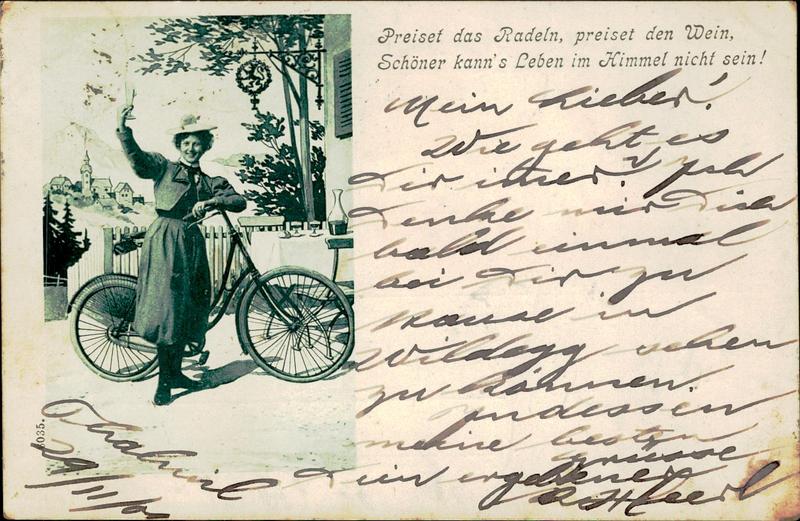 Preiset das Radeln, preiset den Wein,
Schöner kann's Leben im Himmel nicht sein!
Mein Lieber!
Wie geht es
Dir imer? Ich
denke mir Dich
bald einmal
bei Dir zu
Hause in
Wildegg sehen
zu können.
Indessen
meine besten
Grüsse
Dein ergebener
Thalwil
29/11/
6035.